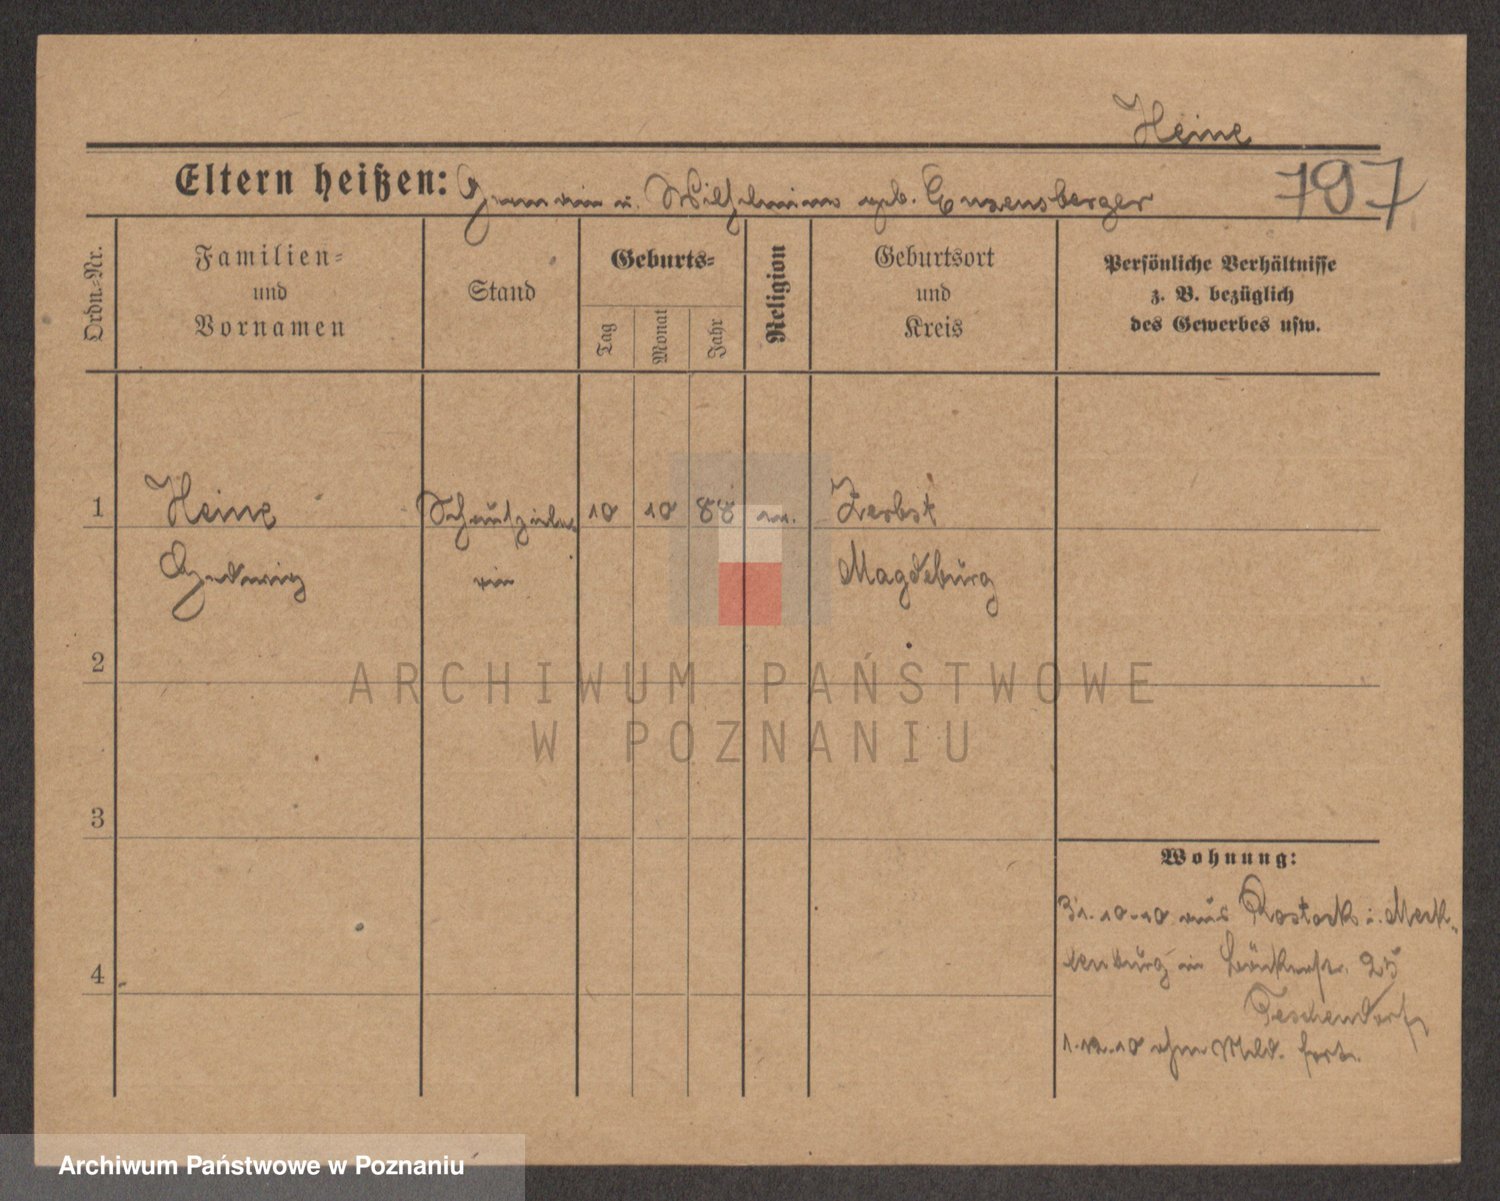 Heine
Eltern heißen: Hermann u. Wilhelmine geb. Enzensberger 797
Ordn.-Nr.
Familien-
und
Vornamen
Stand
Geburts-
Tag
Monat
Jahr
Religion
Geburtsort
und
Kreis
Persönliche Verhältnisse
z. B. bezüglich
des Gewerbes usw.
1 Heine 10 10 88 ev. Zerbst
Hedwig rin Magdeburg
2
ARCHIWUM PAŃSTWOWE
W POZNANIU
3
Wohnung:
31.10.10 aus Rostock i. Meck-
lenburg in 25
4
Teschendorf
1.12.10 ohne Meld. fort.
Archiwum Państwowe w Poznaniu